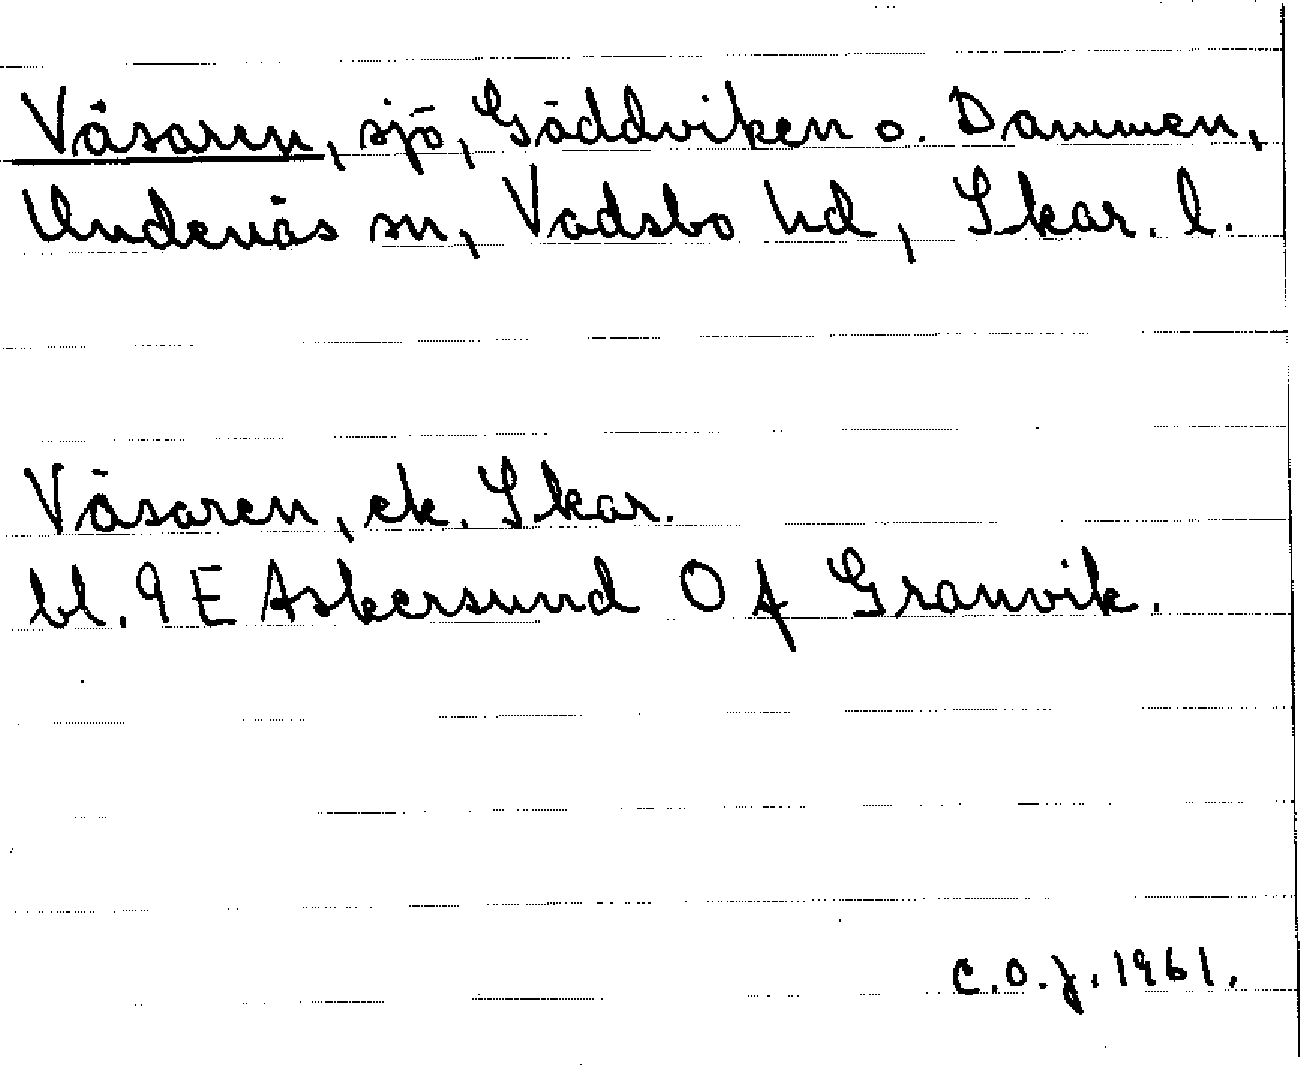 Väsaren, sjö, Gäddviken o. Dammen,
Undenäs sn, Vadsbo hd, Skar. l.
Väsaren, ek. Skar.
bl. 9 E Askersund O f Granvik.
C.O.J. 1961.